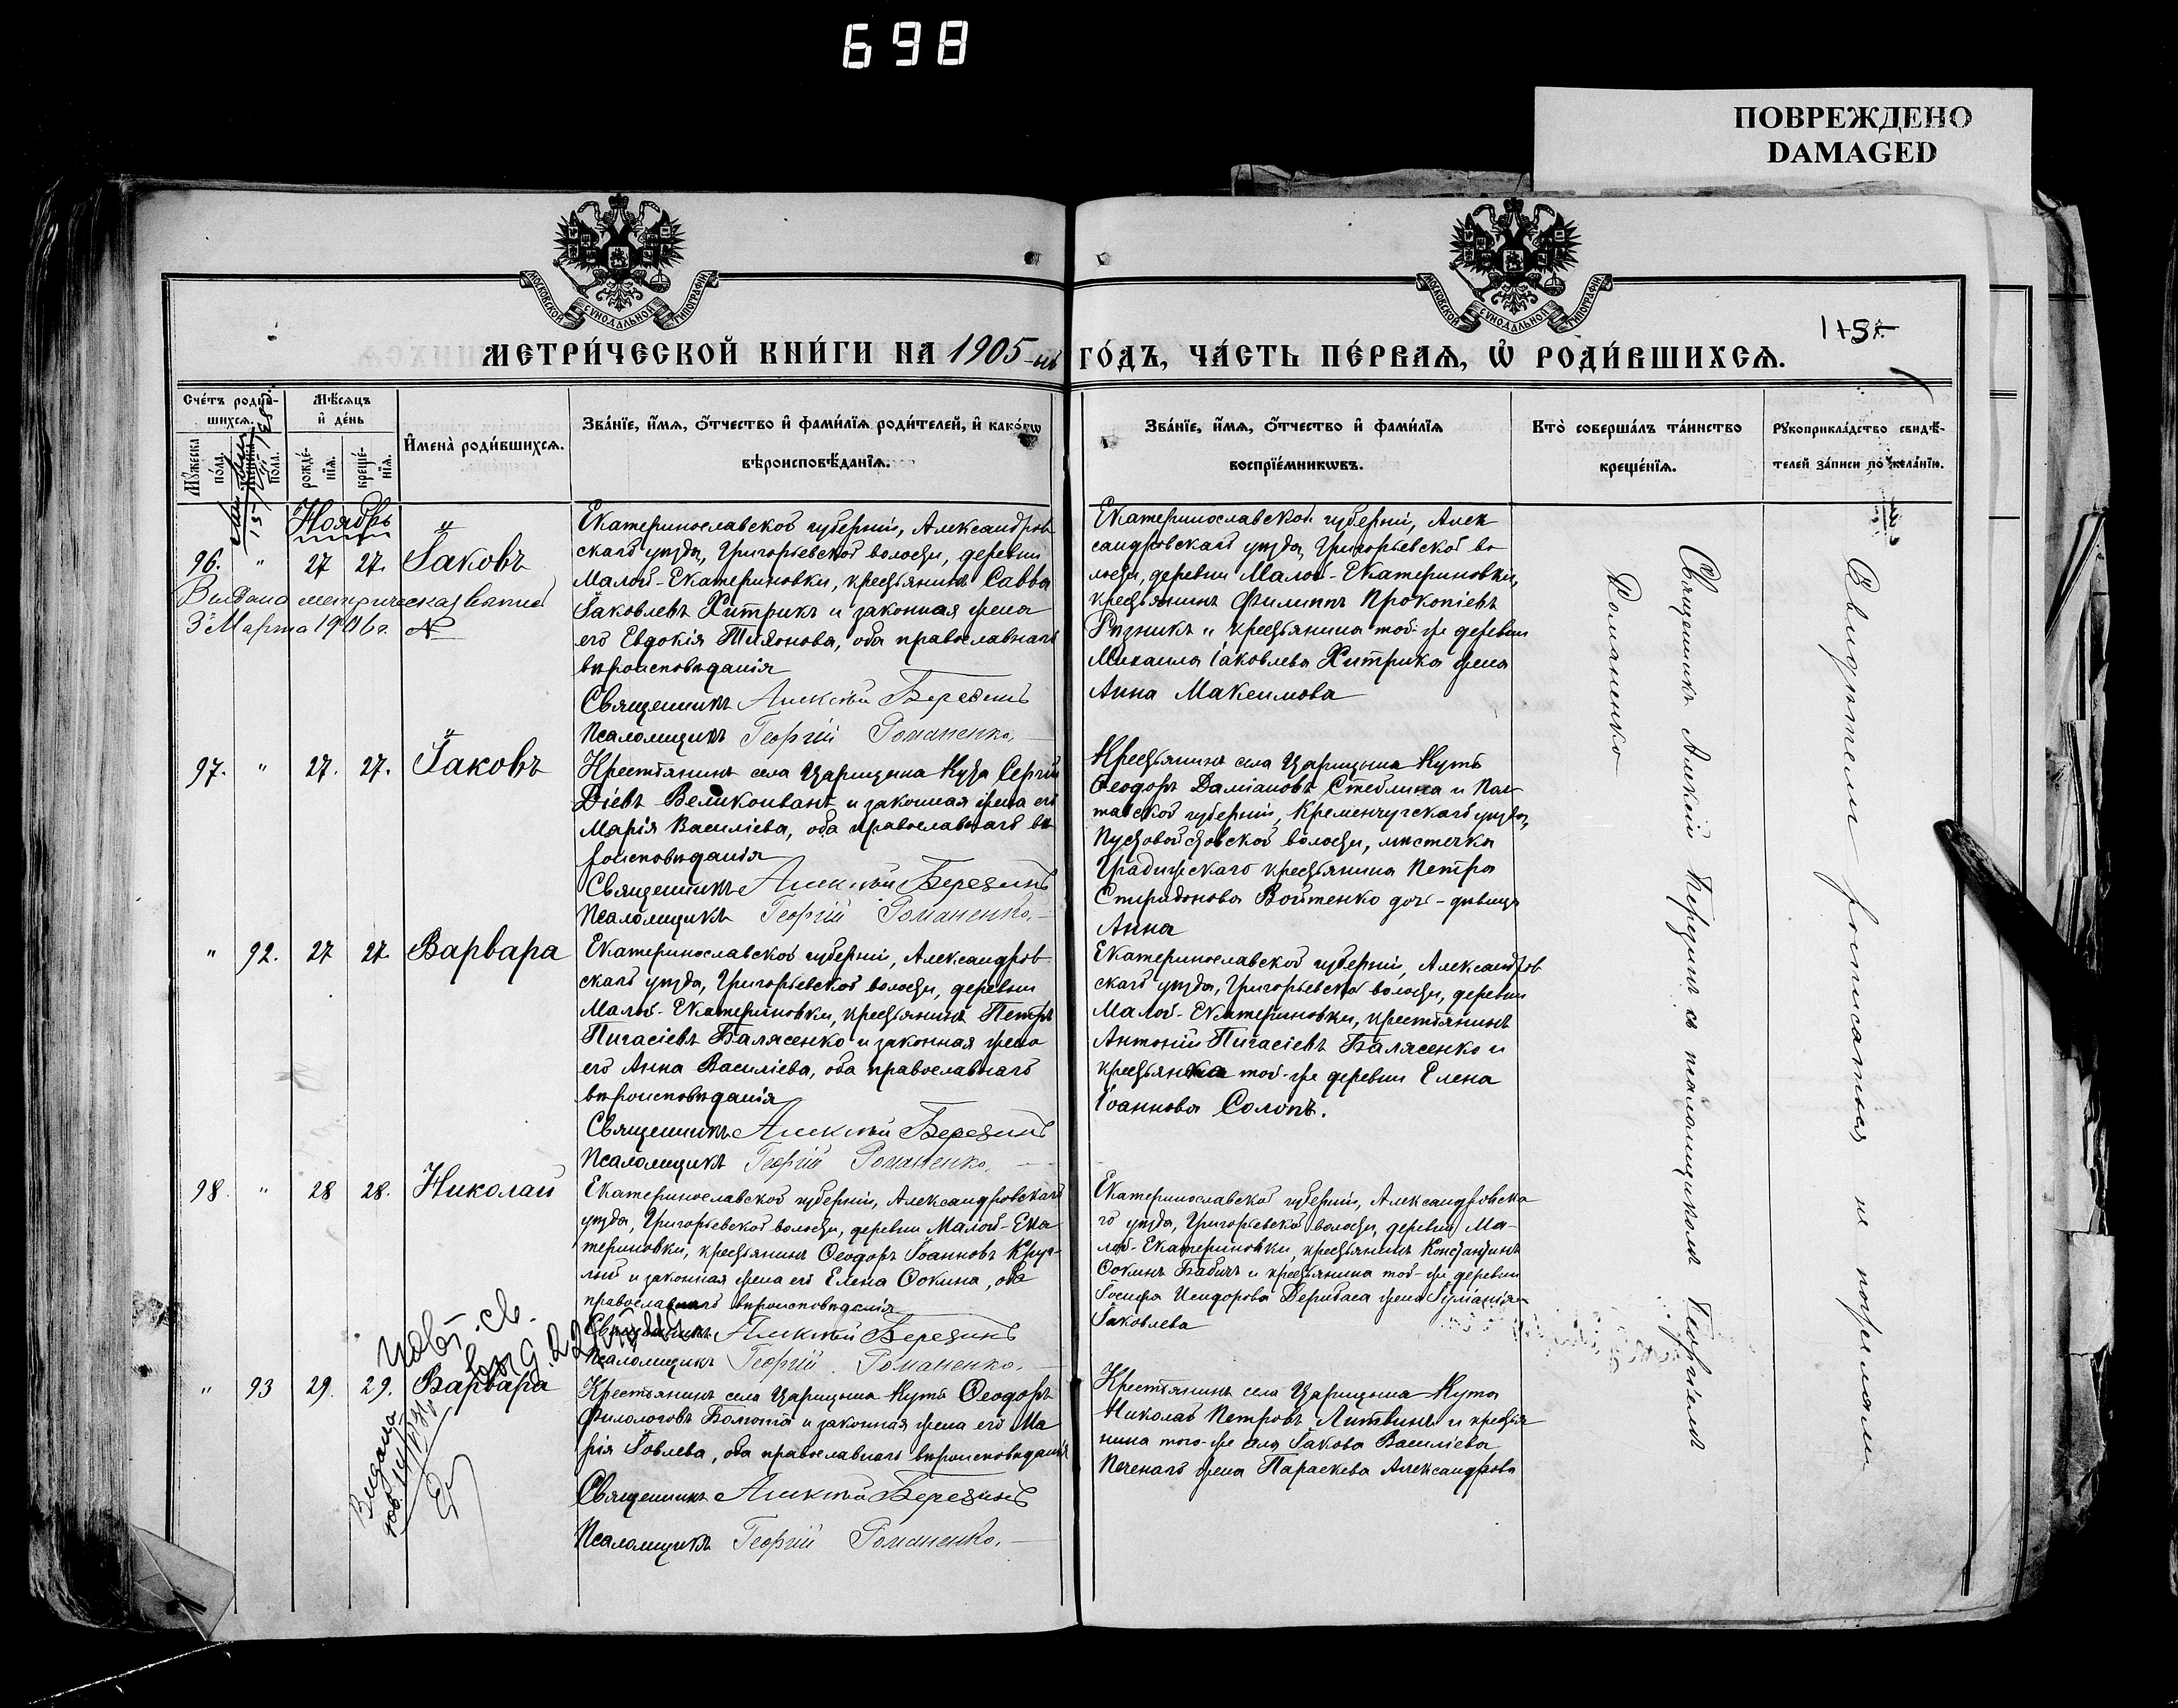 698
ПОВРЕЖДЕНО
DAMAGED
МОСКОВСКОЙ СѴНОДАЛЬНОЙ ТИПОГРАФІИ
МОСКОВСКОЙ СѴНОДАЛЬНОЙ ТИПОГРАФІИ
МЕТРИ́ЧЕСКОЙ КНИ́ГИ НА 1905-ый ГО́ДЪ, ЧА́СТЬ ПЕ́РВАѦ, Ѡ РОДИ́ВШИХСѦ.
Сче́тъ роди́в-
шихсѧ.
Мѣ́сѧцъ
и де́нь
Мꙋ́жеска по́ла.
Же́нска по́ла.
рожде́-
нїѧ.
креще́-
нїѧ.
И҆мена̀ роди́вшихсѧ.
Зва́нїе, и҆́мѧ, ѻ҆́тчество и҆ фами́лїѧ роди́телей, и҆ како́гѡ
вѣроисповѣ́данїѧ.
Зва́нїе, и҆́мѧ, ѻ҆́тчество и҆ фами́лїѧ
воспрїе́мникѡвъ.
Кто̀ соверша́лъ та́инство
креще́нїѧ.
Рꙋкоприкла́дство свидѣ́-
телей за́писи по жела́нїю.
Ноябрь
96. " 27 27. Іаковъ
Выдана метрическая выпись
3 Марта 1906 г. №
Екатеринославской губерніи, Александров
скаго уѣзда, Григорьевской волости, деревни
Малой-Екатериновки, крестьянинъ Савва
Іаковлевъ Хитрикъ и законная жена
его Евдокія Тихонова, оба православнаго
вѣроисповѣданія
Священникъ Алексій Березинъ
Псаломщикъ Георгій Романенко.
Екатеринославской губерніи, Алек
сандровскаго уѣзда, Григорьевской во
лости, деревни Малой-Екатериновки,
крестьянинъ Филиппъ Прокопіевъ
Рѣзникъ и крестьянина той-же деревни
Михаила Іаковлева Хитрика жена
Анна Максимова
97. " 27. 27. Іаковъ
Крестьянинъ села Царицына Кута Сергій
Діевъ Великоиванъ и законная жена его
Марія Василіева, оба православнаго вѣ
роисповѣданія
Священникъ Алексій Березинъ
Псаломщикъ Георгій Романенко.
Крестьянинъ села Царицына Кута
Ѳеодоръ Даміановъ Стеблина и Пол-
тавской губерніи, Кременчугскаго уѣзда,
Пустовойтовской волости, мѣстечка
Градижскаго крестьянина Петра
Спиридонова Войтенко дочь-дѣвица
Анна
" 92. 27 27. Варвара
Екатеринославской губерніи, Александров
скаго уѣзда, Григорьевской волости, деревни
Малой-Екатериновки, крестьянинъ Петръ
Пигасіевъ Балясенко и законная жена
его Анна Василіева, оба православнаго
вѣроисповѣданія
Священникъ Алексій Березинъ
Псаломщикъ Георгій Романенко.
Екатеринославской губерніи, Александров
скаго уѣзда, Григорьевской волости, деревни
Малой-Екатериновки, крестьянинъ
Антоній Пигасіевъ Балясенко и
крестьянка той-же деревни Елена
Іоаннова Солопъ.
98. " 28 28. Николай
Екатеринославской губерніи, Александровскаго
уѣзда, Григорьевской волости, деревни Малой-Ека
териновки, крестьянинъ Ѳеодоръ Іоанновъ Круг-
лый и законная жена его Елена Ѳокина, оба
православнаго вѣроисповѣданія
Священникъ Алексій Березинъ
Псаломщикъ Георгій Романенко.
Екатеринославской губерніи, Александровска
го уѣзда, Григорьевской волости, деревни Ма-
лой-Екатериновки, крестьянинъ Константинъ
Ѳокинъ Бабичъ и крестьянина той-же деревни
Іосифа Исидорова Дерибаса жена Іуліанія
Іаковлева
" 93 29. 29. Варвара
Выдана
Крестьянинъ села Царицына Кута Ѳеодоръ
Филологовъ и законная жена его Ма
рія Іовлева, оба православнаго вѣроисповѣданія
Священникъ Алексій Березинъ
Псаломщикъ Георгій Романенко.
Крестьянинъ села Царицына Кута
Николай Петровъ Литвинъ и крестья
нина того-же села Іакова Василіева
Печенаго жена Параскева Александрова
Священникъ Алексій Березинъ съ псаломщикомъ Георгіемъ
Романенко
Свидѣтели росписаться не пожелали